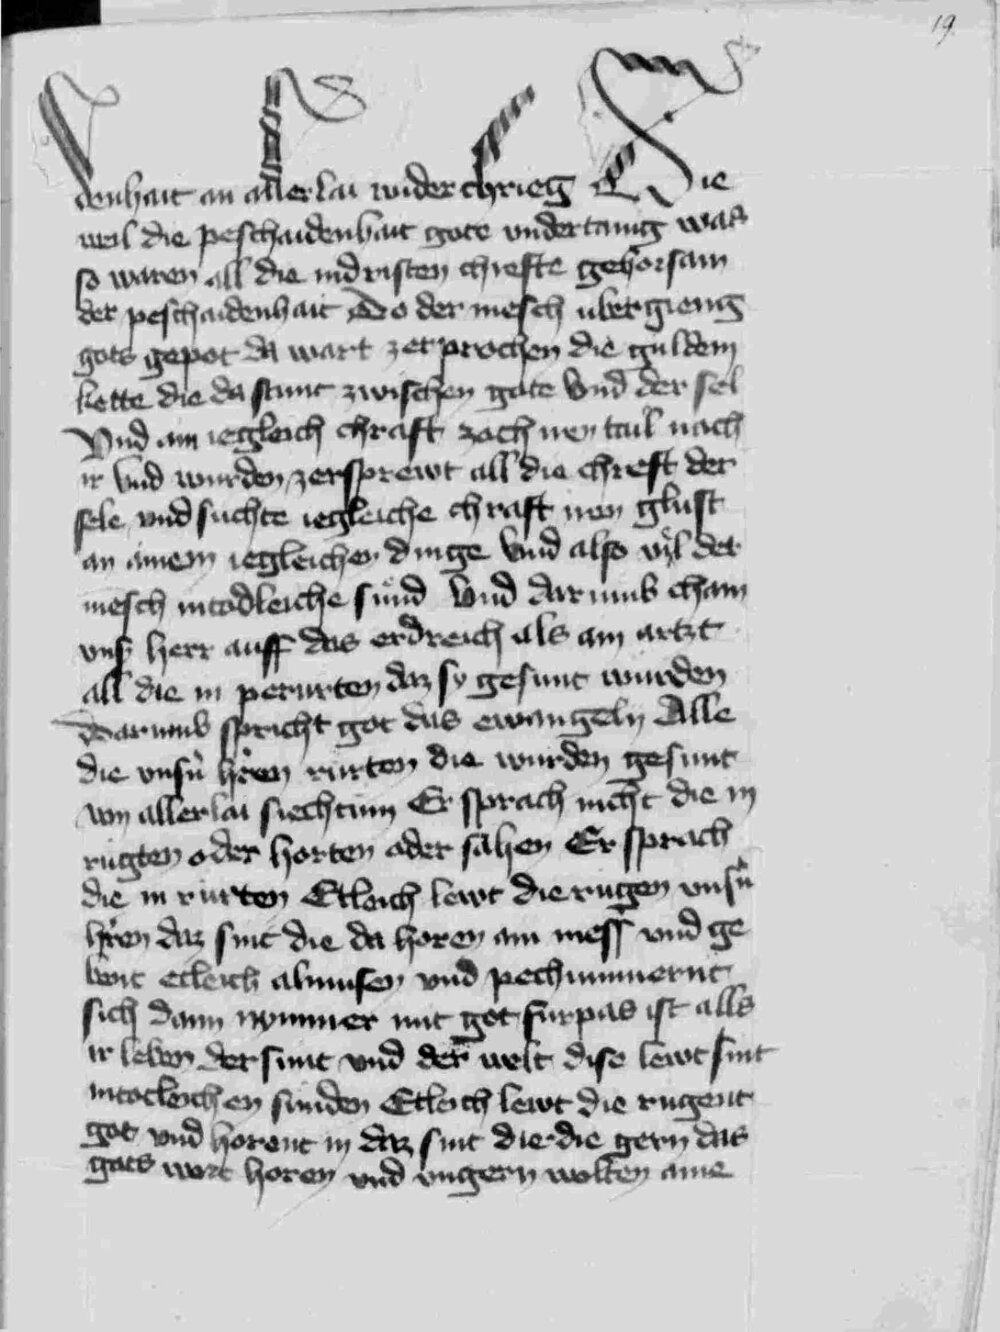 19.
denhait an allerlai widerchrieg Die
weil die peschaidenhait gote vndertanig was
so waren all die nidristen chrefte gehorsam
der peschaidenhait Do der mesch ubergieng
gots gepot da wart zerprochen die guldein
kette die da stunt zwischen gote vnd der sel
Vnd ain iegleich chraft zoch iren tail nach
ir vnd wurden zersprewt all die chreft der
sele vnd suchte iegleiche chraft iren glust
an ainem iegleichen dinge vnd also viel der
mesch in todleiche sünd Vnd darumb cham
vnser herr auff das erdreich als ain artzt
all die in perurten daz sy gesunt wurden
Darumb spricht got das ewangely Alle
die vnsern herren rurten die wurden gesunt
von allerlai siechtum Er sprach nicht die in
rugten oder horten oder sahen Er sprach
die in rurten Etleich lewt die rugen vnsern
herren daz sint die da horen ain mess vnd ge
bent etleich almusen vnd pechummernt
sich dann nymmer mit got furpas ist alls
ir leben der sunt vnd der welt dise lewt sint
in totleichen sunden Etleich lewt die rugent
got vnd horent in daz sint die die gern das
gots wort horen vnd vngern wolten aine